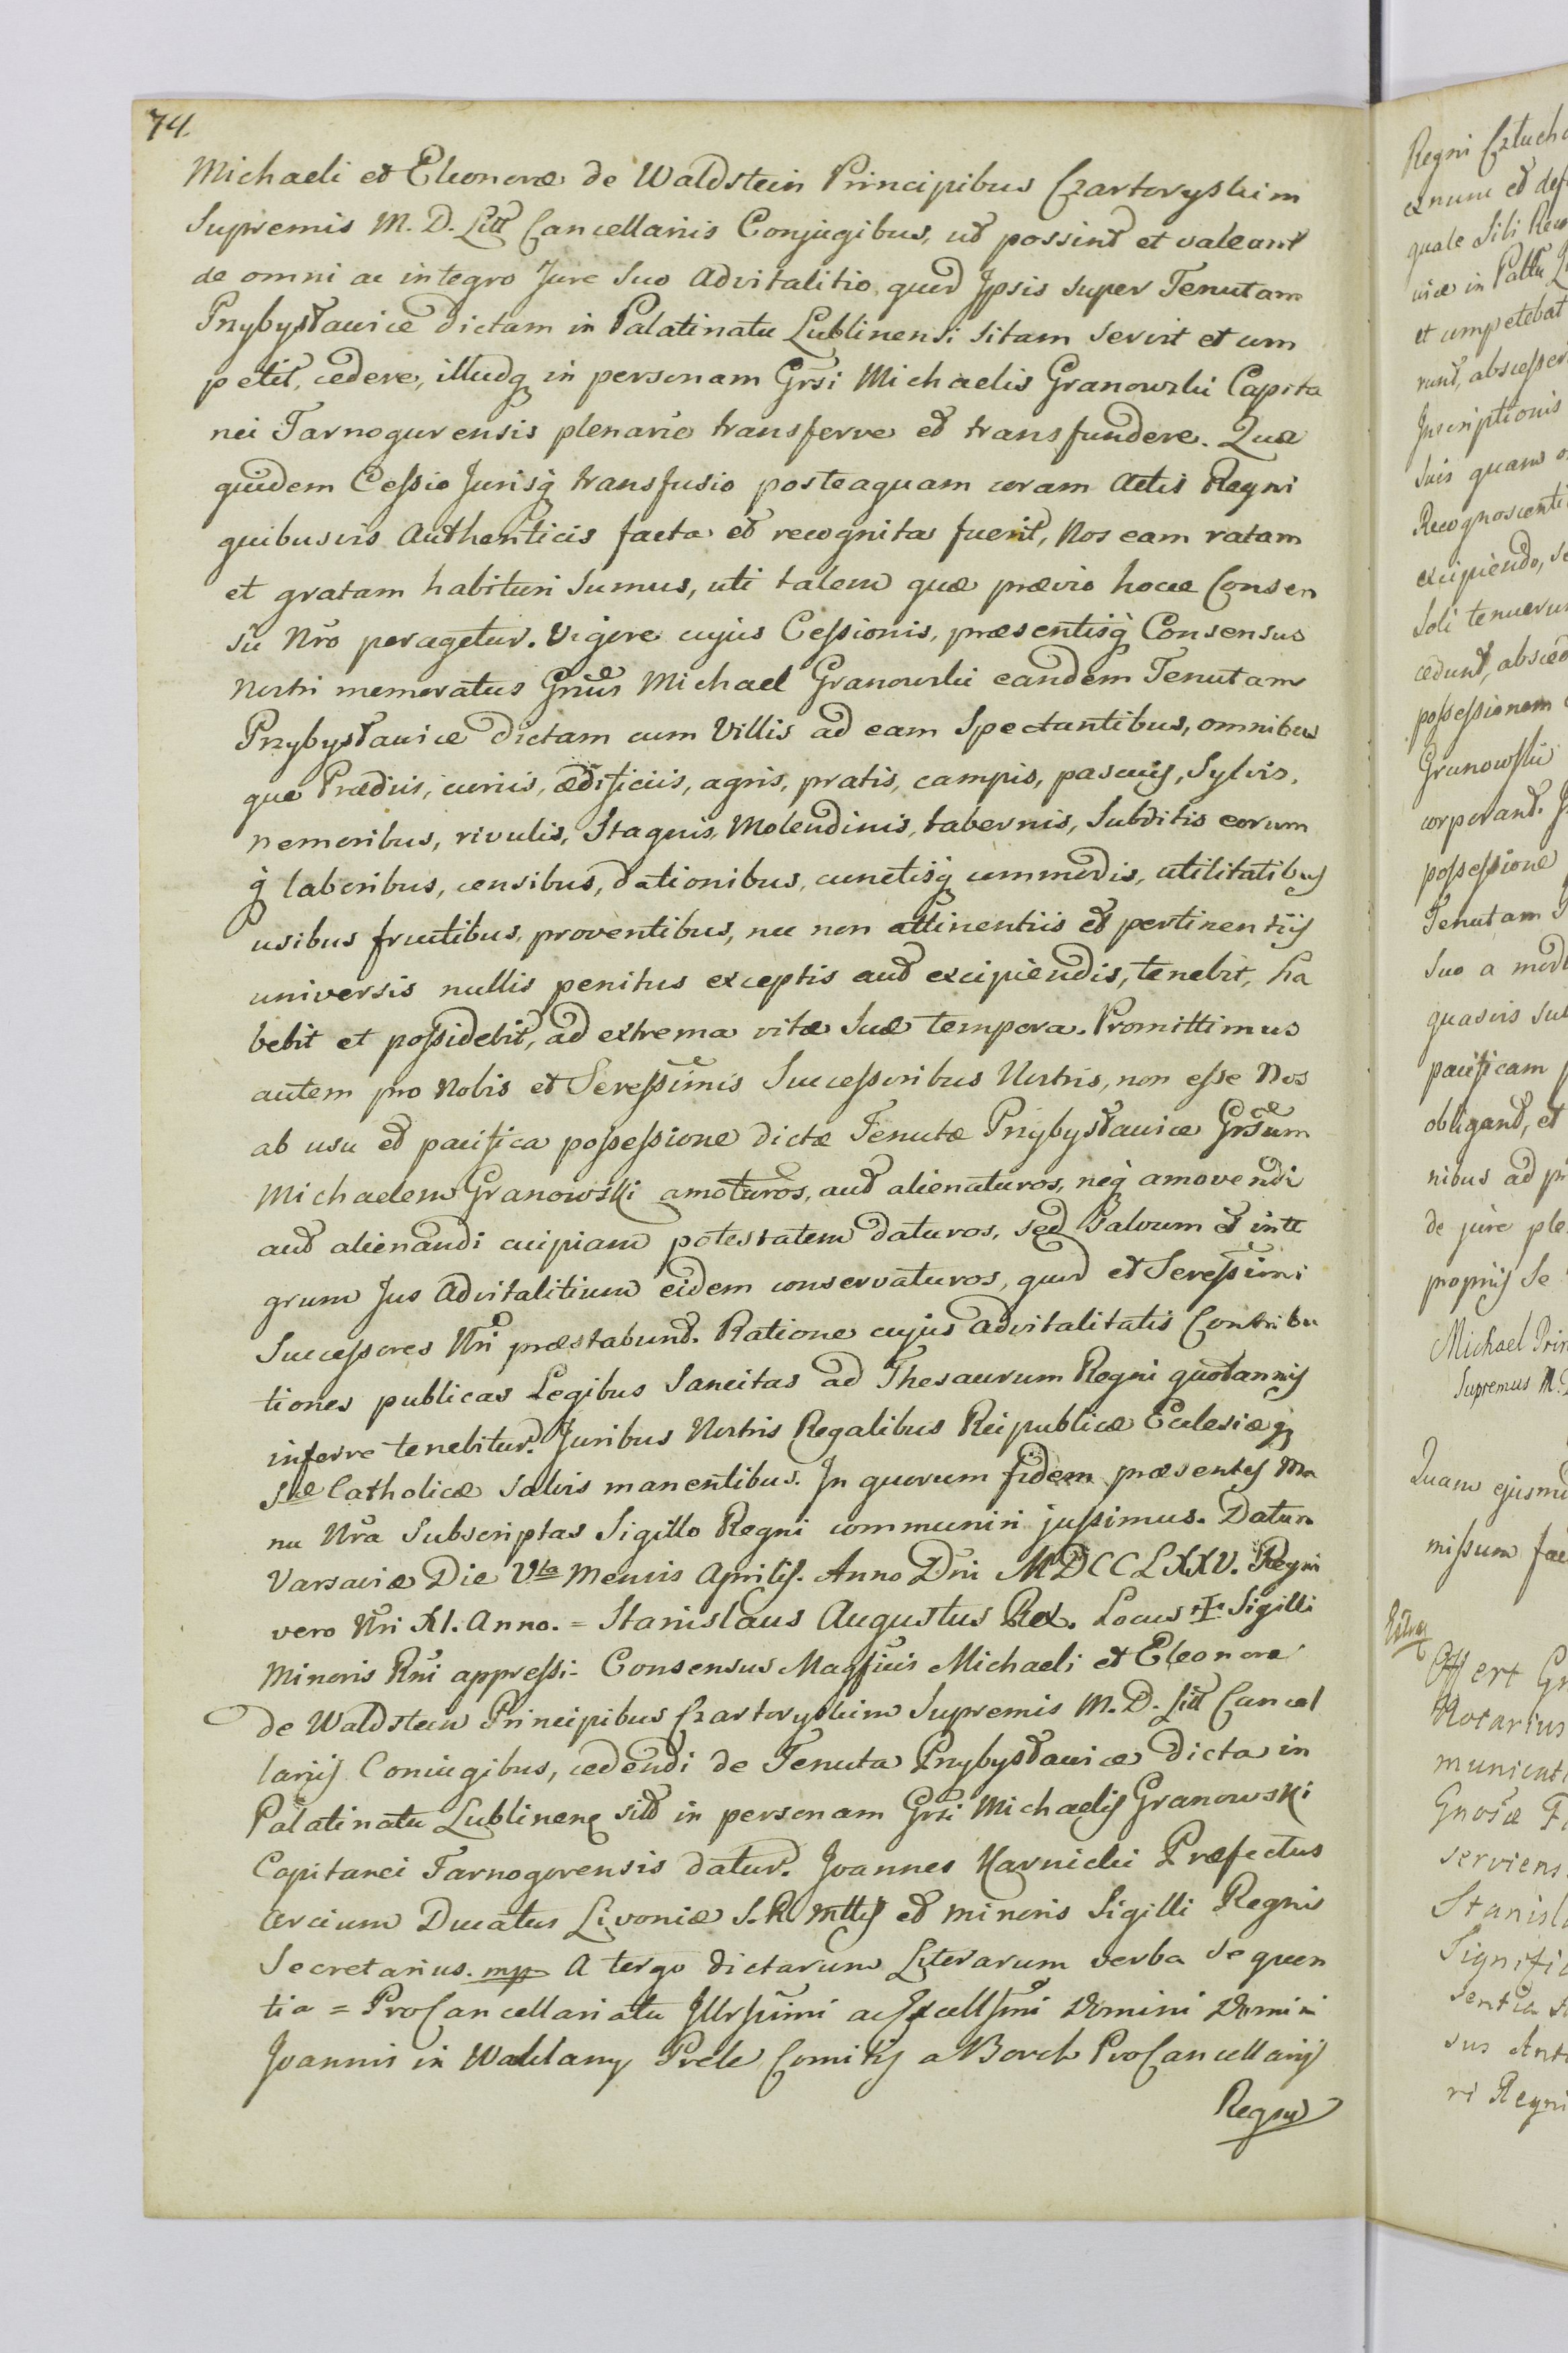 74.
Michaeli et Eleonoræ de Waldstein Principibus Czartoryskim
Supremis M. D. Litt Cancellariis Conjugibus, ut possint et valeant
de omni ac integro Jure Suo Advitalitio quod Ipsis super Tenutam
Przybysławice dictam in Palatinatu Lublinensi sitam servit et com
petit, cedere, illudq in personam Grsi Michaelis Granowski Capita
nei Tarnogurensis plenarie transferre et transfundere. Quæ
quidem Cessio Jurisq transfusio posteaquam coram Actis Regni
quibusvis Authenticis facta et recognita fuerit, Nos eam ratam
et gratam habituri sumus, uti talem quæ prævio hocce Consen
su Nro peragetur. Vigore cujus Cessionis, præsentisq Consensus
Nostri memoratus Gnus Michael Granowski eandem Tenutam
Przybysławice dictam cum Villis ad eam Spectantibus, omnibus
que Prædiis, curiis, ædificiis, agris, pratis, campis, pascuis, Sylvis,
nemoribus, rivulis, Stagnis, Molendinis, tabernis, Subditis eorum
q laboribus, censibus, dationibus, cunctisq commodis, utilitatibus
usibus fructibus, proventibus, nec non attinentiis et pertinentiis
universis nullis penitus exceptis aut excipiendis, tenebit, ha
bebit et possidebit, ad extrema vitæ Suæ tempora. Promittimus
autem pro Nobis et Seressimis Successoribus Nostris, non esse Nos
ab usu et pacifica possessione dictæ Tenutæ Przybysławice Grsum
Michaelem Granowski amoturos, aut alienaturos, neq amovendi
aut alienandi cuipiam potestatem daturos, sed salvum et inte
grum Jus Advitalitium eidem conservaturos, quod et Seressimi
Successores Nri præstabunt. Ratione cujus advitalitatis Contribu
tiones publicas Legibus Sancitas ad Thesaurum Regni quotannis
inferre tenebitur. Juribus Nostris Regalibus Reipublicæ Ecclesiæq
Stæ Catholicæ salvis manentibus. In quorum fidem præsentes Ma
nu Nra Subscriptas Sigillo Regni communiri jussimus. Datum
Varsaviæ Die Vta Mensis Aprilis. Anno Dni MDCCLXXV. Regni
vero Nri XI. Anno. = Stanislaus Augustus Rex. Locus ✠ Sigilli
Minoris Rni appressi = Consensus Magficis Michaeli et Eleonoræ
de Waldstein Principibus Czartoryskim Supremis M. D. Litt Cancel
lariis Coniugibus, cedendi de Tenuta Przybysławice dicta in
Palatinatu Lublinen sita in personam Grsi Michaelis Granowski
Capitanei Tarnogorensis datur. Joannes Karnicki Præfectus
Arcium Ducatus Livoniæ S. R. Mttis et minoris Sigilli Regnis
Secretarius. mp A tergo dictarum Literarum verba sequen
tia = ProCancellariatu Illrssimi ac Excellsmi Domini Domini
Joannis in Waklany Prele Comitis a Borch ProCancellarij
Regni
Regni Człucho
quale Sibi
et competebat
Inscriptionis
Suis quam
Recognoscenti
excipiendo,
Soli tenuerun
cedunt,
possessionem
Granowski
corporant.
possessione
Tenutam
Suo a
quasvis
pacificam
obligant, et
nibus ad
de jure ple
propriis Se
Michael Prin
Supremus M.
Quam ejusmo
missum fac
Offert Gn
Notarius
municat
Gnosæ
serviens
Stanisla
Signific
sentia
sus Ant
ri Regni